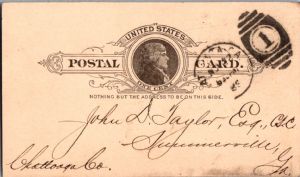 UNITED STATES
POSTAL CARD.
ONE CENT
NOTHING BUT THE ADDRESS TO BE ON THIS SIDE.
1
John D. Taylor, Esq.,
Summerville,
Chattooga Co. Ga.